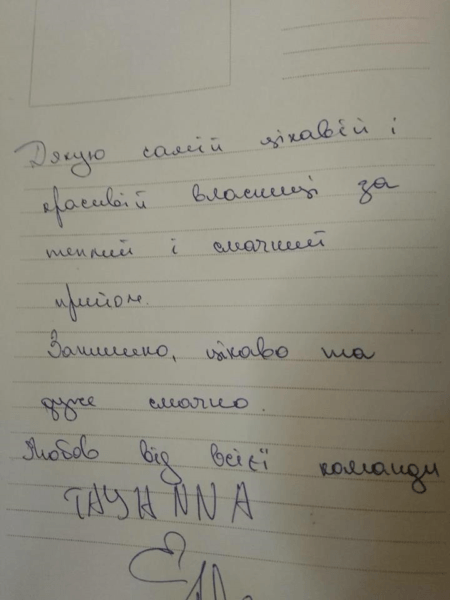 Дякую самій цікавій і
красивій власниці за
теплий і смачний
прийом.
Затишно, цікаво та
дуже смачно.
Любов від всієї команди
TAYANNA